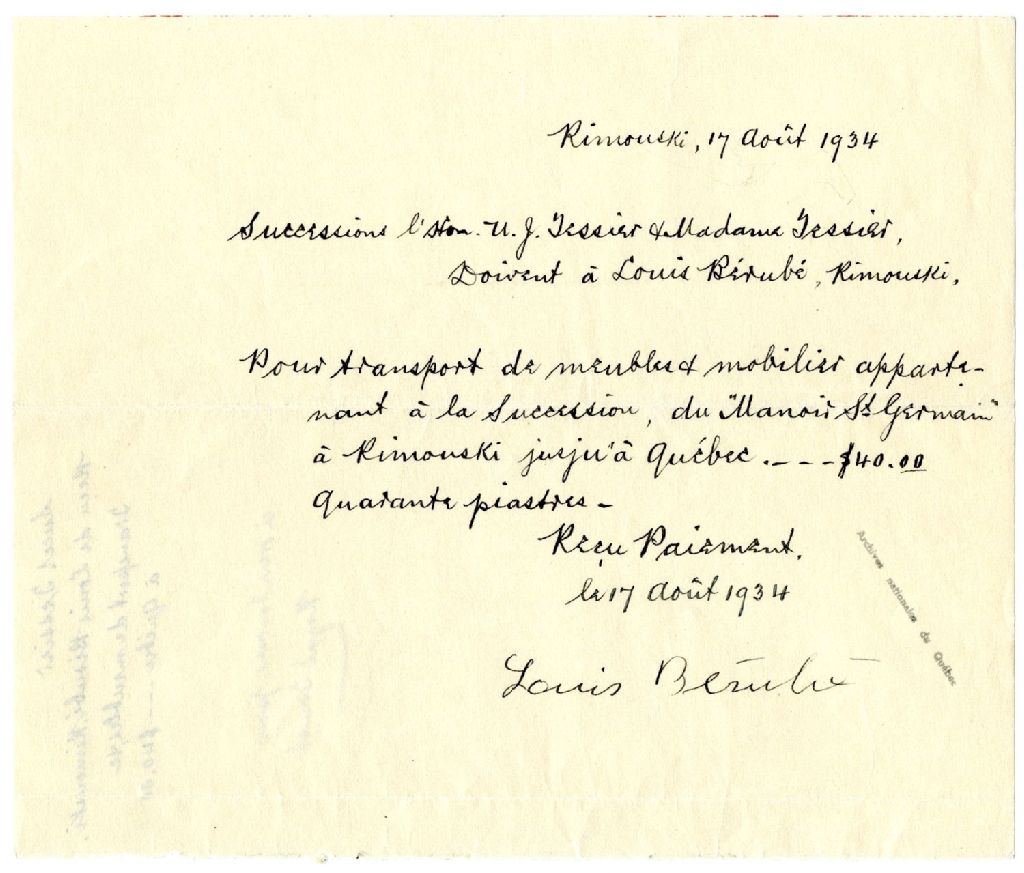 Rimouski, 17 Août 1934
Successions l'Hon. U. J. Tessier & Madame Tessier,
Doivent à Louis Bérubé, Rimouski.
Pour transport de meubles & mobilier apparte-
nant à la Succession, du "Manoir St Germain"
à Rimouski jusqu'à Québec. - - - $40.00
Quarante piastres -
Reçu Paiement.
le 17 Août 1934
Louis Bérubé
Archives nationales du Québec